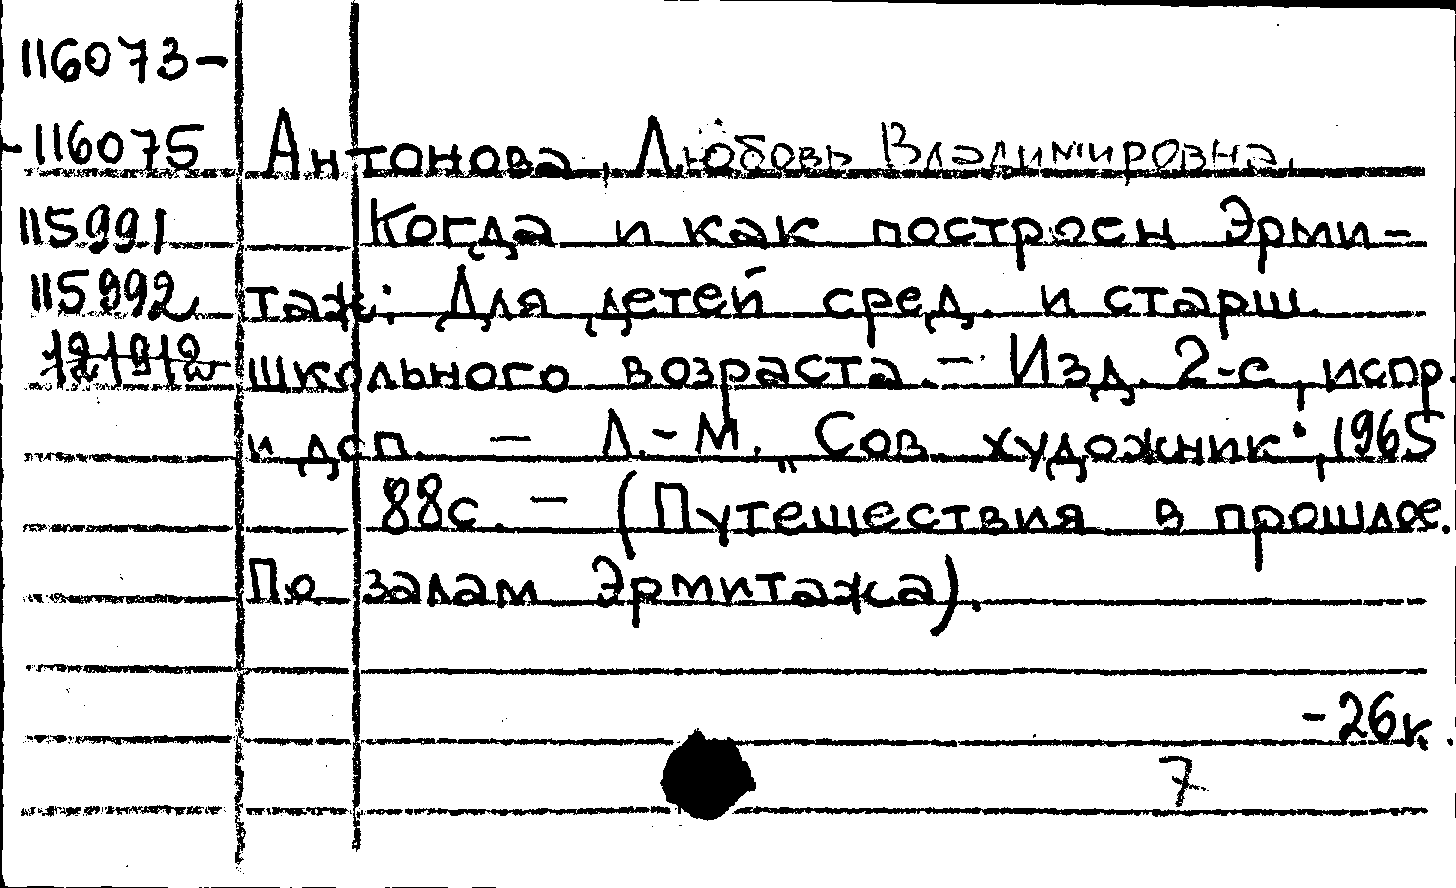 116073-
-116075 Антонова, Любовь Владимировна.
115991 Когда и как построен Эрми-
115992 таж: Для детей сред. и старш.
121912 школьного возраста. - Изд. 2-е, испр.
и доп. - Л.-М. „Сов. художник", 1965
88с. - (Путешествия в прошлое.
По залам Эрмитажа).
-26к.
7